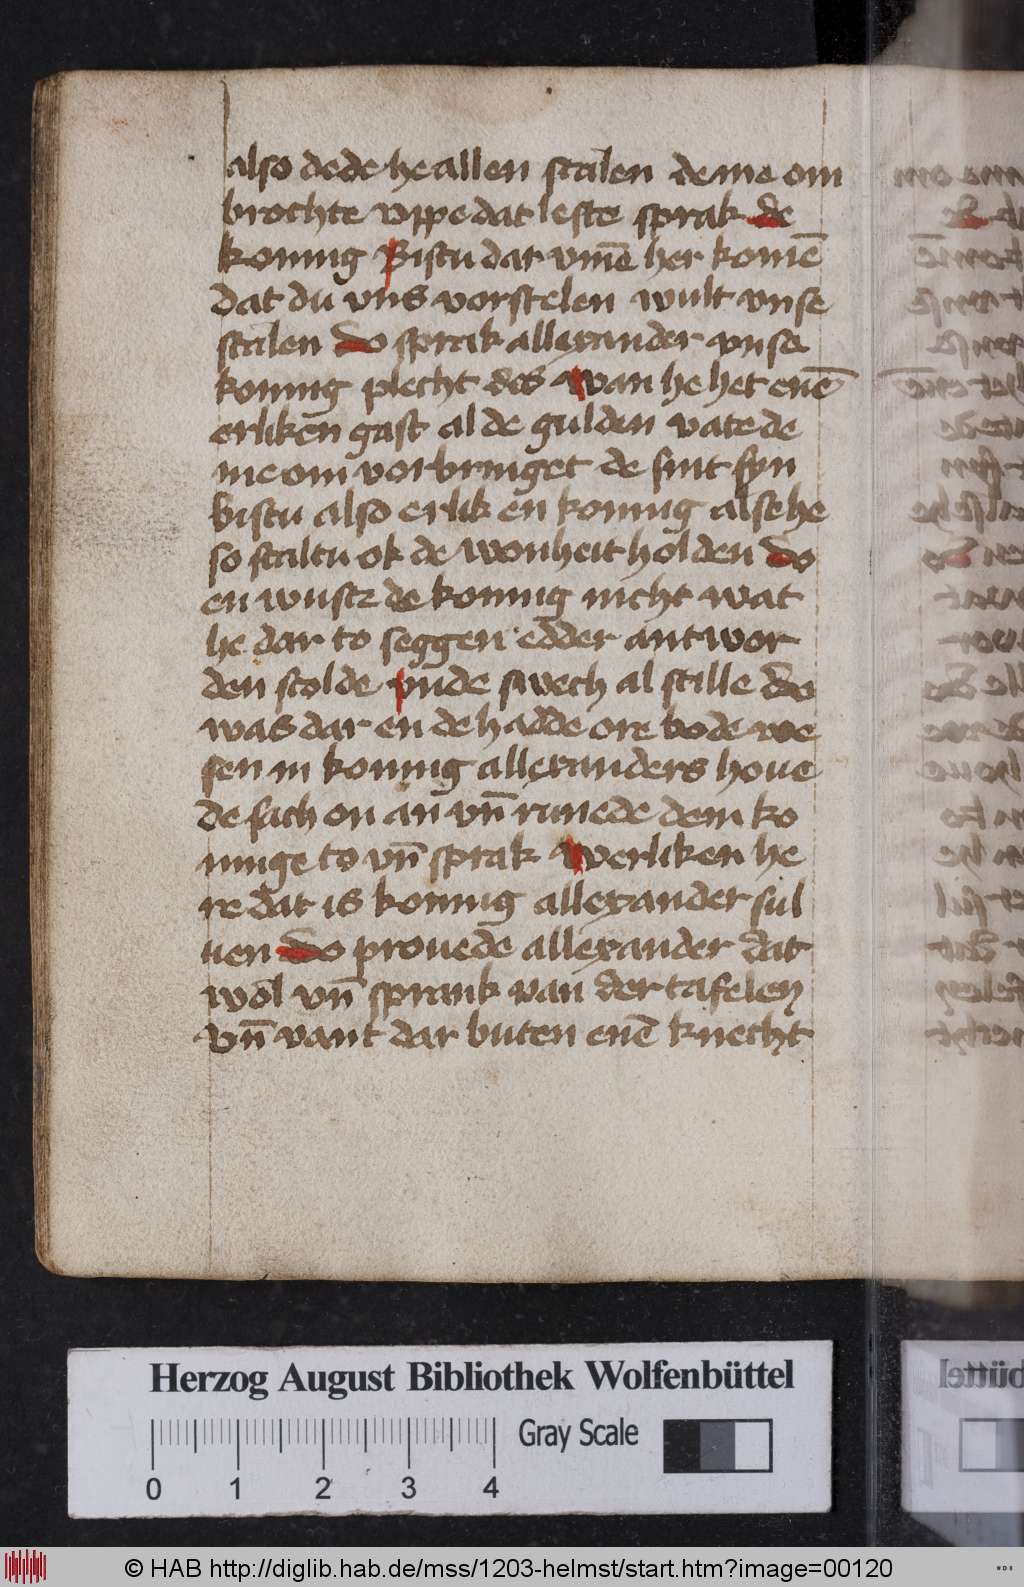 also dede he allen stalen deme om
brochte vppe dat leste sprak de
konnig Bistu dat vm̄e her komē
dat du vns vorstelen wult vnse
stalen do sprak allexander vnse
konnig plecht des wan he het enē
erliken gast al de gulden vate de
me om vorbringet de sint syn
bistu also erlik en konnig alse he
so staltu ok de wonheit holden do
en wuste de konnig nicht wat
he dar to seggen edder antwor
den scolde vnde swech al stille do
was dar en de hadde ore bode we
sen in konnig allexanders houe
de sach on an vn̄ runede dem ko
ninge to vn̄ sprak werliken he
re dat is konnig allexander sul
uen do prouede allexander dat
wol vn̄ sprank van der tafelen
vn̄ vant dar buten enē knecht
Herzog August Bibliothek Wolfenbüttel
Gray Scale
0 1 2 3 4
© HAB http://diglib.hab.de/mss/1203-helmst/start.htm?image=00120